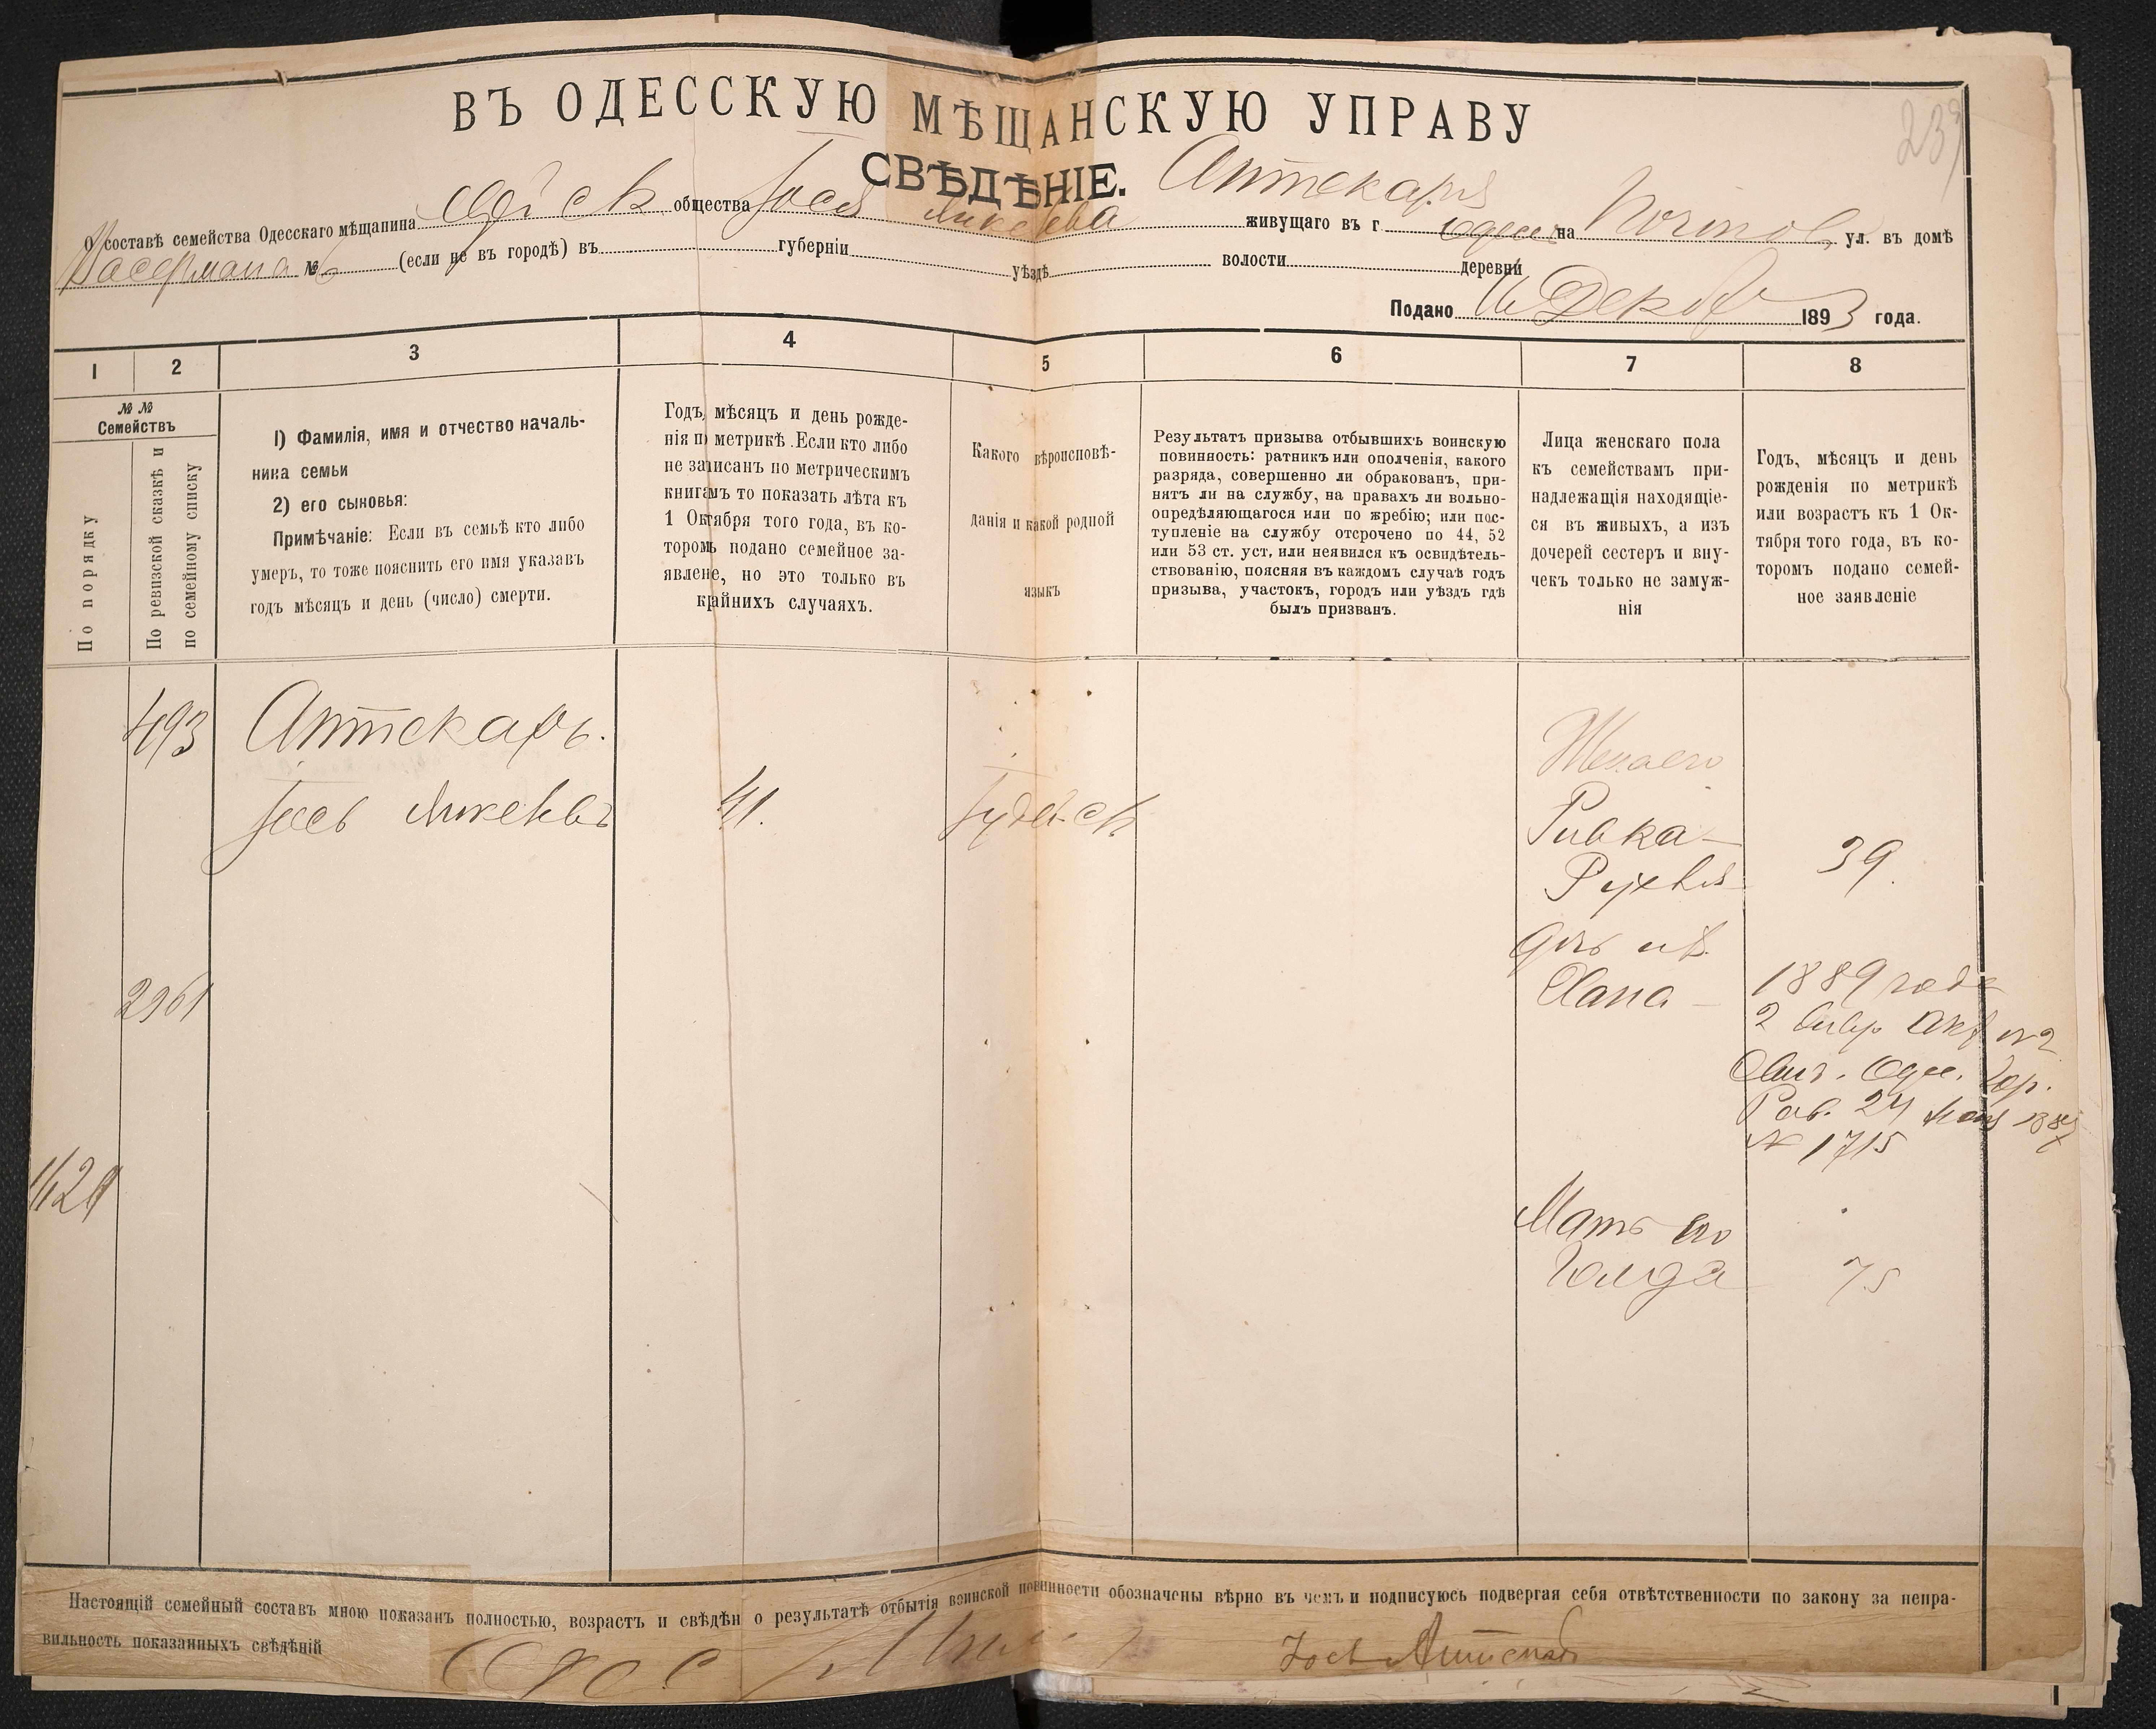 ВЪ ОДЕССКУЮ МѢЩАНСКУЮ УПРАВУ
239
СВѢДѢНІЕ.
Аптекаря
О составѣ семейства Одесскаго мѣщанина общества Іося Янкелева живущаго въ г. Одесс на Почтов ул. въ домѣ
Васермана № 6 (если не въ городѣ) въ губерніи уѣздѣ волости деревни
Подано Декбр 1893 года.
1 2 3 4 5 6 7 8
№ № Семействъ
По порядку
По ревизской сказкѣ и по семейному списку
1) Фамилія, имя и отчество началь-
ника семьи
2) его сыновья:
Примѣчаніе: Если въ семьѣ кто либо
умеръ, то тоже пояснить его имя указавъ
годъ мѣсяцъ и день (число) смерти.
Годъ, мѣсяцъ и день рожде-
нія по метрикѣ. Если кто либо
не записанъ по метрическимъ
книгамъ то показать лѣта къ
1 Октября того года, въ ко-
торомъ подано семейное за-
явлене, но это только въ
крайнихъ случаяхъ.
Какого вѣроисповѣ-
данія и какой родной
языкъ
Результатъ призыва отбывшихъ воинскую
повинность: ратникъ или ополченія, какого
разряда, совершенно ли обракованъ, при-
нятъ ли на службу, на правахъ ли вольно-
опредѣляющагося или по жребію; или пос-
тупленіе на службу отсрочено по 44, 52
или 53 ст. уст, или неявился къ освидѣтель-
ствованію, поясняя въ каждомъ случаѣ годъ
призыва, участокъ, городъ или уѣздъ гдѣ
былъ призванъ.
Лица женскаго пола
къ семействамъ при-
надлежащія находящіе-
ся въ живыхъ, а изъ
дочерей сестеръ и вну-
чекъ только не замуж-
нія
Годъ, мѣсяцъ и день
рожденія по метрикѣ
или возрастъ къ 1 Ок-
тября того года, въ ко-
торомъ подано семей-
ное заявленіе
493 Аптекарь.
Іось Янкелевъ 41. Іудейск
Жена его
Ривка-
Рухля 39.
дочь ихъ
Хана - 1889 года
2 Янвр Акт № 2
Свид. Одес. Гор.
Рав. 24 1889
№ 1715
2961
1621
Мать его
Голда 75
Настоящій семейный составъ мною показанъ полностью, возрастъ и свѣдѣн о результатѣ отбытія воинской повинности обозначены вѣрно въ чемъ и подписуюсь подвергая себя отвѣтственности по закону за непра-
вильность показанныхъ свѣдѣній
Іось Аптекарь